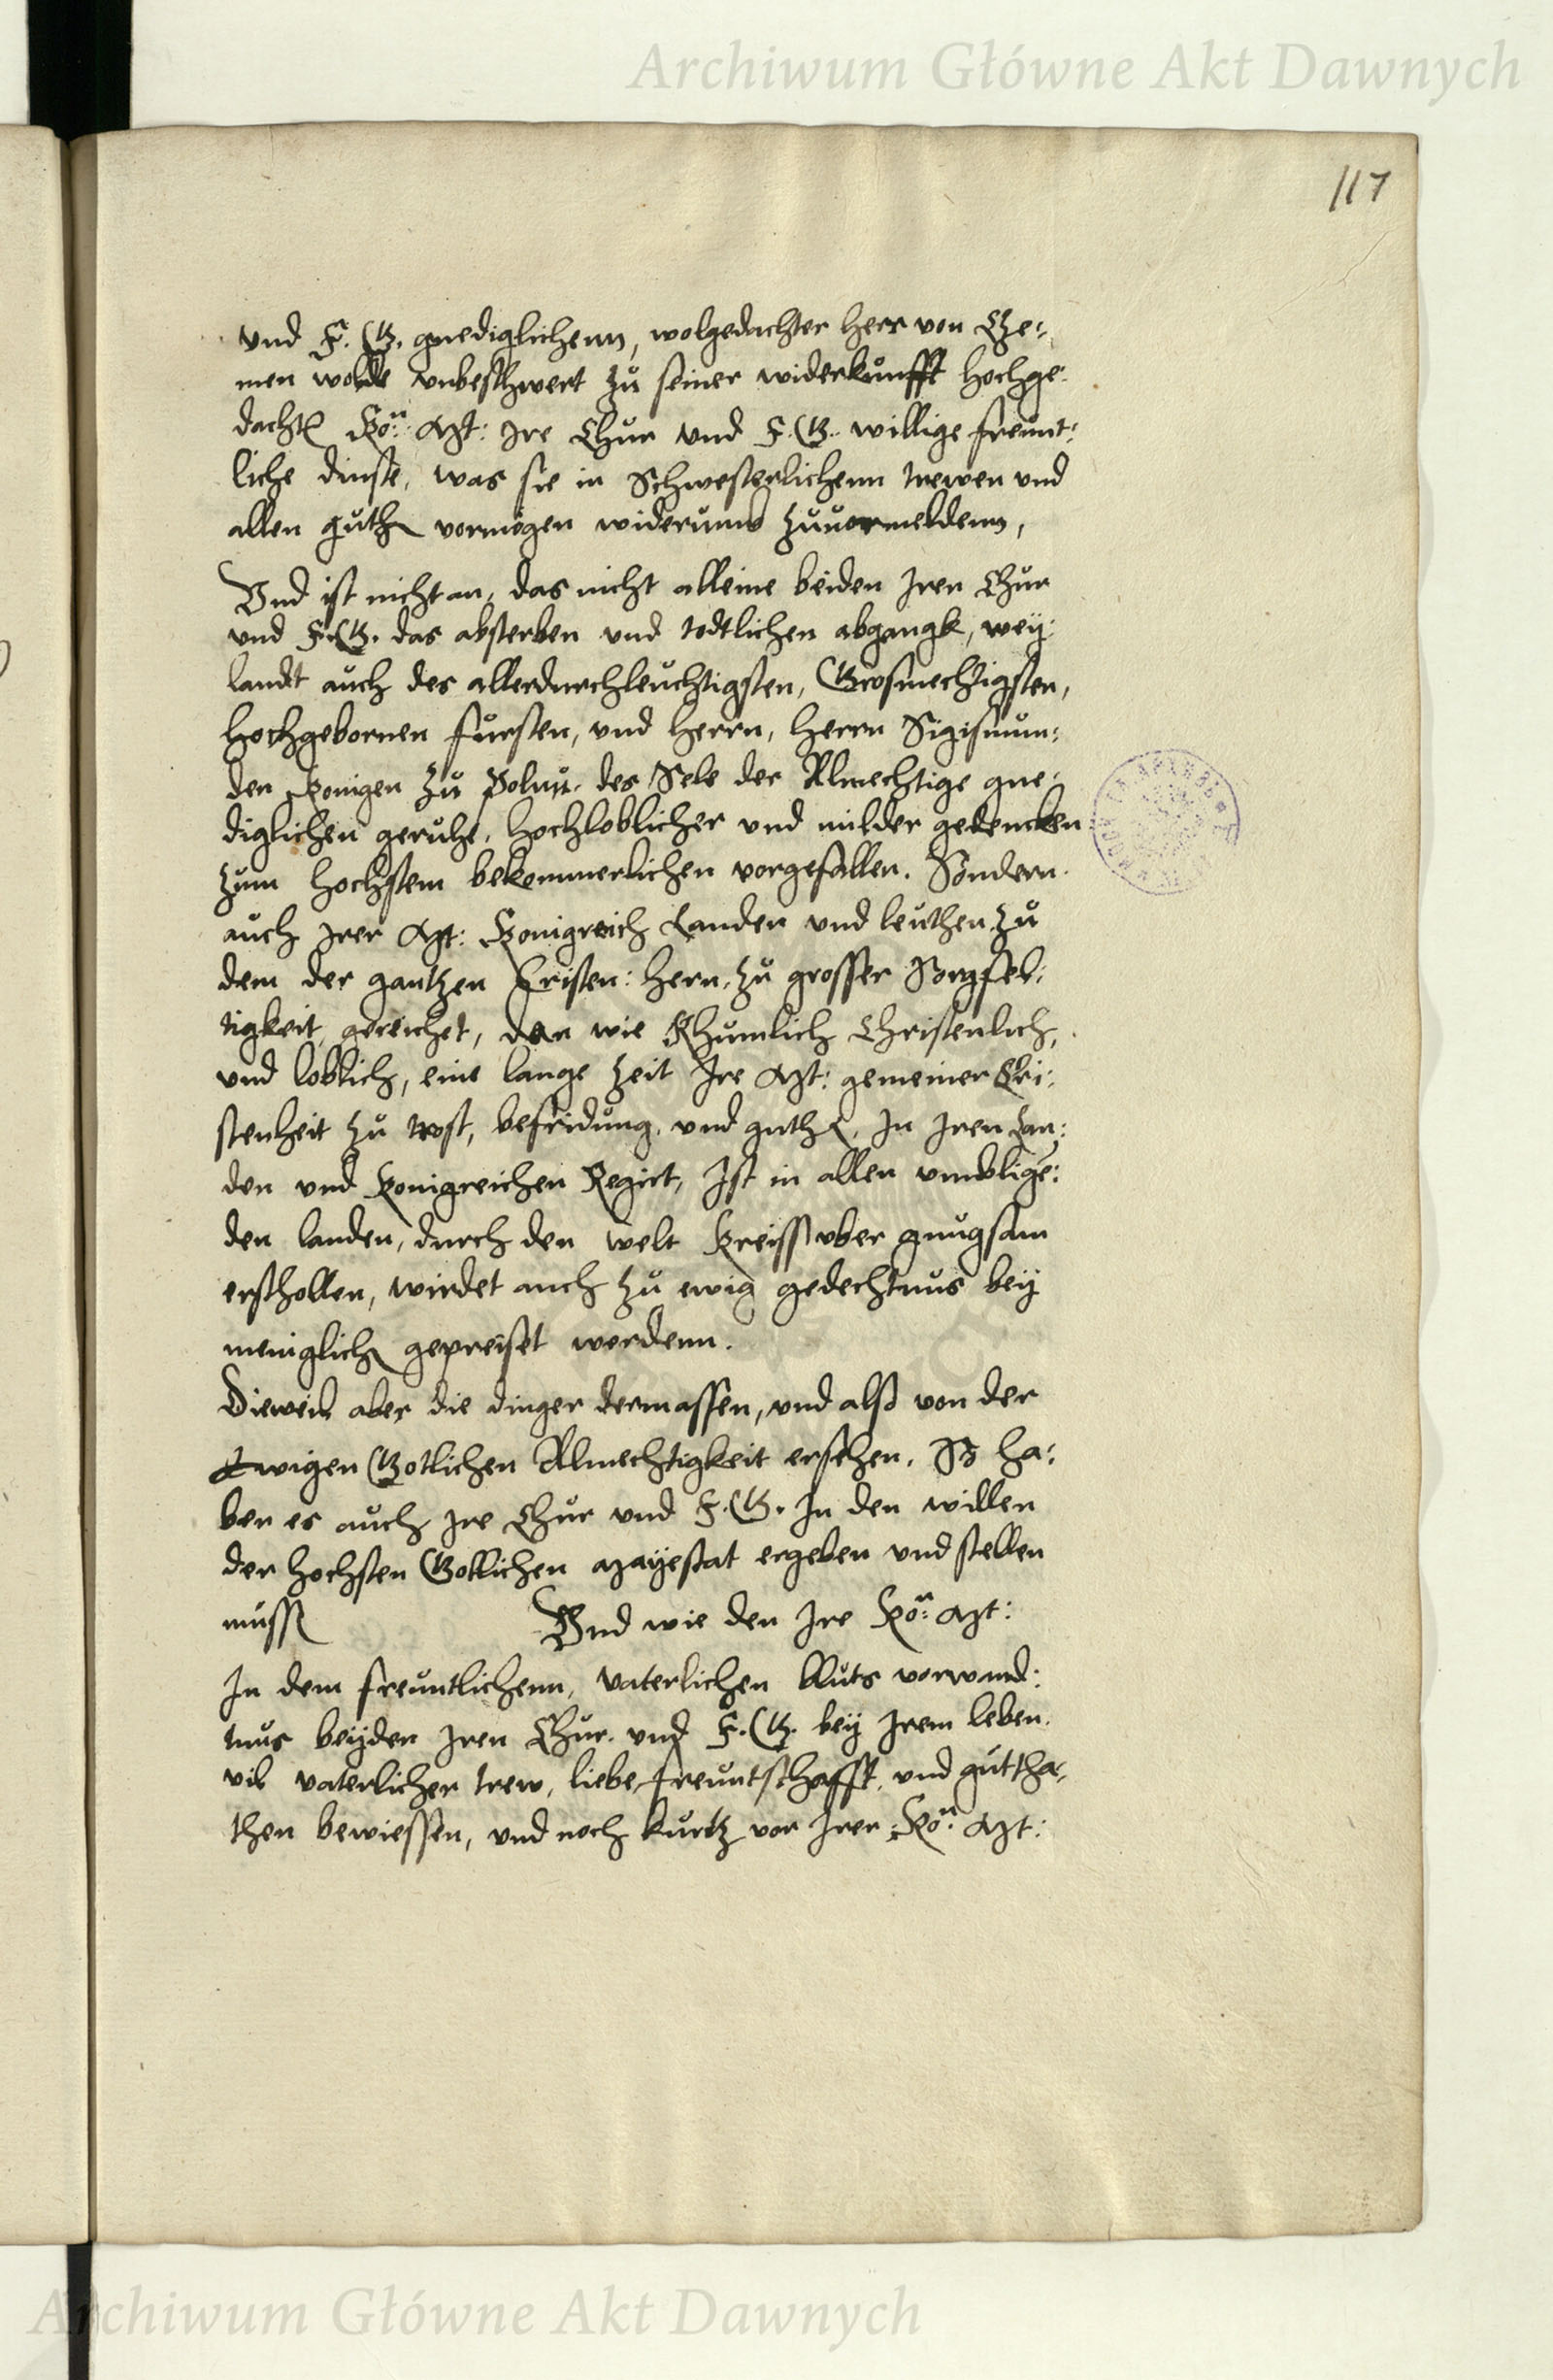 Archiwum Główne Akt Dawnych
117
vnd F. G. gnediglichenn, wolgedachter herr von Che:
men wolde vnbeschwert zu seiner widerkunfft hochge:
dachter Kö: Mt: Ire Chur vnd F. G. willige freunt:
liche dinste, was sie in Schwesterlichenn trewen vnd
allen guthen vormögen widerumb zuuormeldenn,
Vnd ist nicht an, das nicht alleine beiden Iren Chur
vnd F. G. das absterben vnd todtlichen abgangk, wey:
landt auch des allerdurchleuchtigsten, Grosmechtigsten,
hochgebornen fursten, vnd herrn, herrn Sigismun:
den Konigen zu Polnn, des Sele der Almechtige gne:
diglichen geruhe, hochloblicher vnd milder gedencken
zum hochstem bekommerlichen vorgefallen. Sondern
auch Irer Mt: Konigreich Landen vnd leuthen, zu
dem der gantzen Cristen: hern, zu grosser Sorgfel:
tigkeit gereichet, dan wie Rhumlich Christenlich,
vnd loblich, eine lange zeit Ire Mt: gemeiner Cri:
stenheit zu trost, befridung, vnd guthen, In Iren Lan:
den vnd Konigreichen Regirt, Ist in allen vmblige:
den landen, durch den welt Kreiss vber gnugsam
erschollen, wirdet auch zu ewig gedechtnus bey
meniglichen gepreiset werdenn.
Dieweil aber die dinger dermassen, vnd alß von der
Ewigen Gotlichen Almechtigkeit ersehen, So ha:
ben es auch Ire Chur vnd F. G. In den willen
der hochsten Gotlichen Mayestat ergeben vnd stellen
mussen Vnd wie den Ire Kö: Mt:
In dem freuntlichenn, vaterlichen bluts vorwand:
tnus beyden Iren Chur. vnd F. G. bey Irem leben.
vil vaterlicher trew, liebe, freuntschafft, vnd guttha:
then bewiessen, vnd noch kurtz vor Irer Kö: Mt:
Archiwum Główne Akt Dawnych